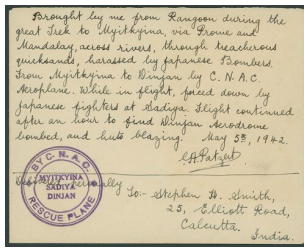 Brought by me from Rangoon during the
great Trek to Myitkyina, via Prome and
Mandalay, across rivers, through treacherous
quicksands, harassed by Japanese Bombers.
From Myitkyina to Dinjan by C.N.A.C.
Aeroplane. While in flight, forced down by
Japanese fighters at Sadiya. Flight continued
after an hour to find Dinjan Aerodrome
bombed, and huts blazing. May 5th, 1942.
BY C.N.A.C.
MYITKYINA
SADIYA
DINJAN
RESCUE PLANE
To:- Stephen H. Smith,
25, Elliott Road,
Calcutta.
India.